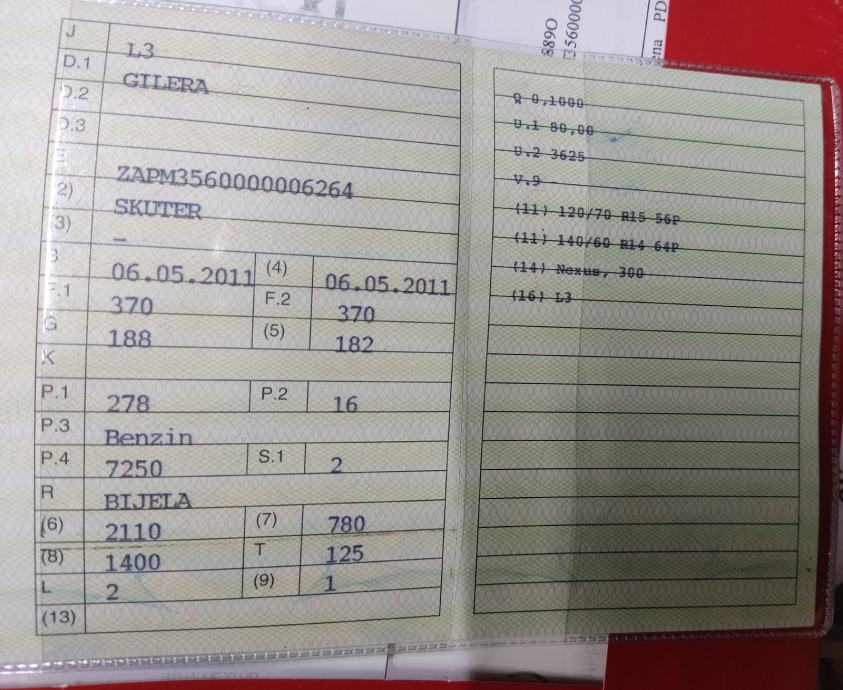 889O
356000
ena PD
J L3
D.1 GILERA
D.2
D.3
E ZAPM3560000006264
2) SKUTER
(3) –
06.05.2011 (4) 06.05.2011
F.1 370 F.2 370
G 188 (5) 182
K
P.1 278 P.2 16
P.3 Benzin
P.4 7250 S.1 2
R BIJELA
(6) 2110 (7) 780
(8) 1400 T 125
L 2 (9) 1
(13)
Q 0,1000
U.1 80,00
U.2 3625
V.9 -
(11) 120/70 R15 56P
(11) 140/60 R14 64P
(14) Nexus, 300
(16) L3